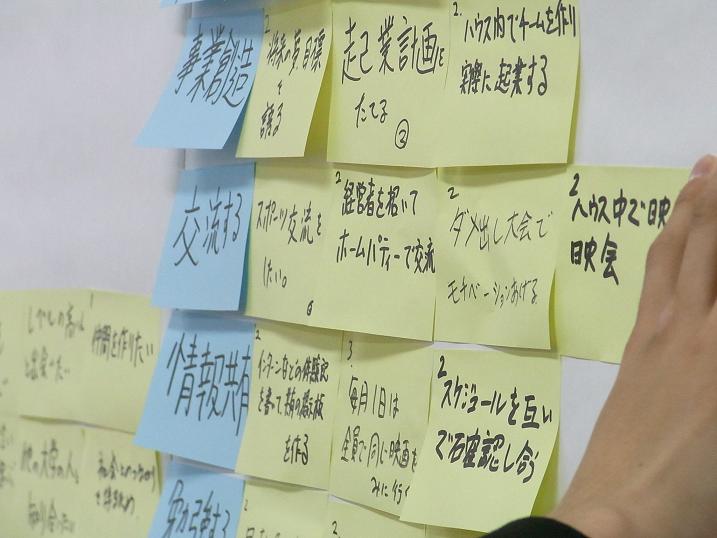 事業創造
2
将来の夢、目標
を
語る
起業計画を
たてる
②
2.
ハウス内でチームを作り
実際に起業する
交流する
スポーツ交流を
したい。
6
2
経営者を招いて
ホームパーティーで交流
2
ダメ出し大会で
モチベーションあげる
2
ハウス中で映
映会
情報共有
2
インターンなどの体験記
を書いて共有の掲示板
を作る
3.
毎月1日は
全員で同じ映画を
みに行く
2
スケジュールを互い
で確認し合う
勉強する
2.
と出会いたい
1
仲間を作りたい
他の大学の人と
知り合いたい
社会とのつながり
を持ちたい